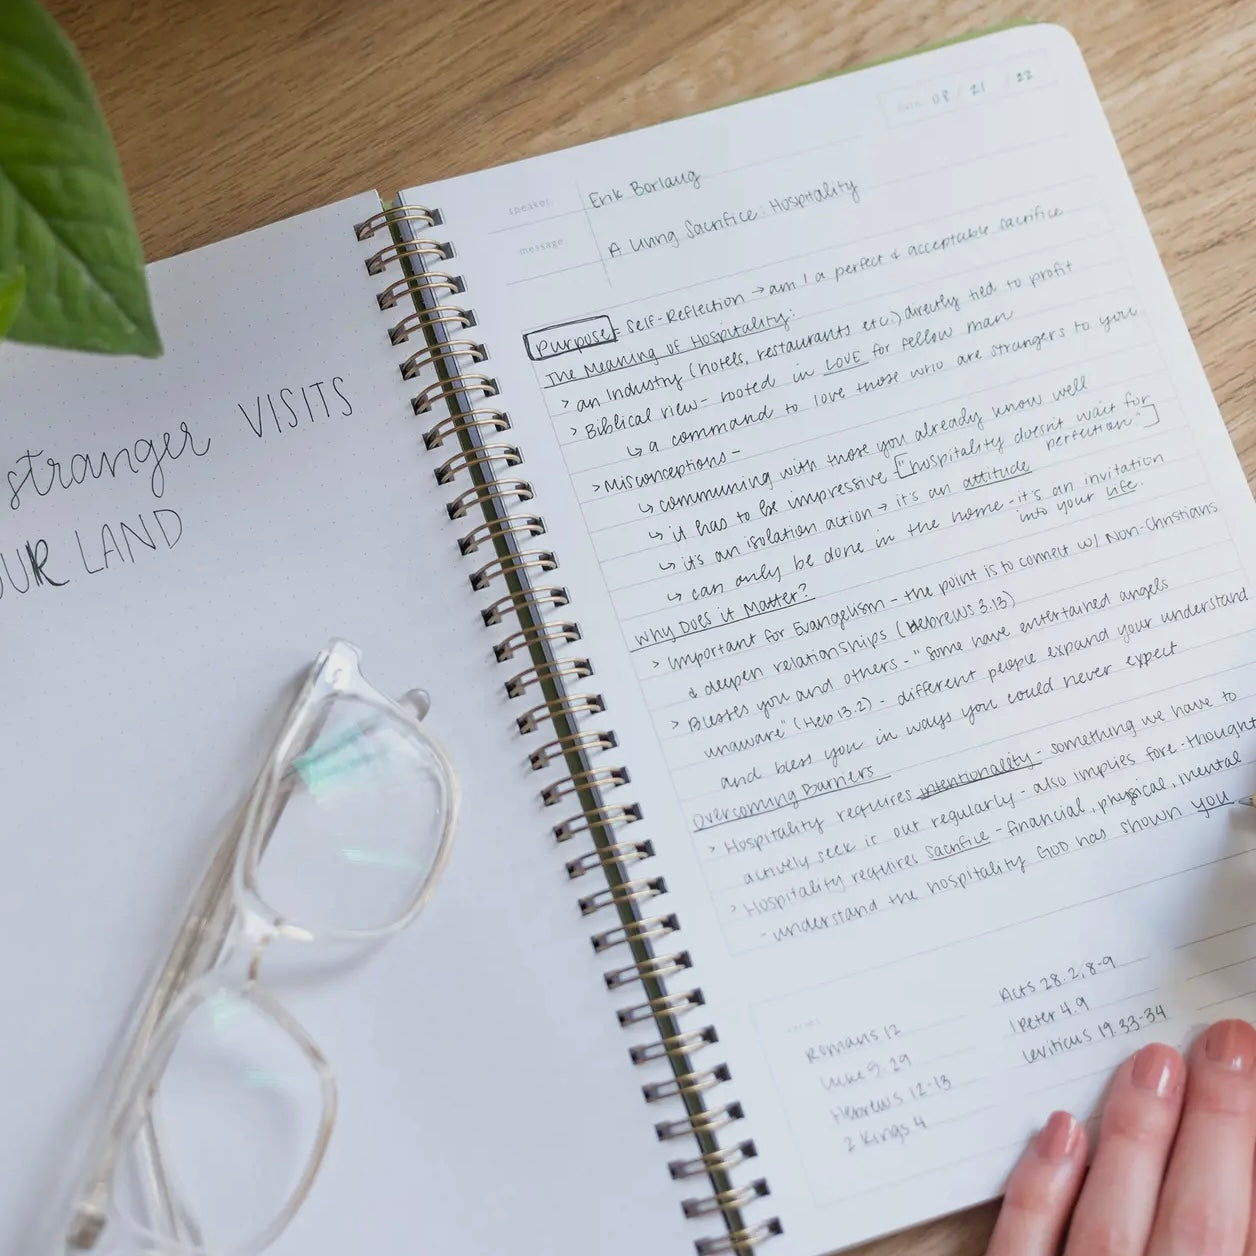 stranger VISITS
OUR LAND
Date 08 / 21 / 22
speaker Erik Borlaug
message A Living Sacrifice: Hospitality
Purpose = Self-Reflection → am I a perfect & acceptable sacrifice
The Meaning of Hospitality:
> an Industry (hotels, restaurants etc.) directly tied to profit
> Biblical view - rooted in LOVE for fellow man
↳ a command to love those who are strangers to you
> Misconceptions -
↳ communing with those you already know well
↳ it has to be impressive ["hospitality doesn't wait for
perfection."]
↳ it's an isolation action → it's an attitude
↳ can only be done in the home - it's an invitation
into your life.
Why Does it Matter?
> Important for Evangelism - the point is to connect w/ Non-Christians
& deepen relationships (Hebrews 3.13)
> Blesses you and others - "Some have entertained angels
unaware" (Heb 13.2) - different people expand your understand
and bless you in ways you could never expect
Overcoming Barriers
> Hospitality requires intentionality - something we have to
actively seek it out regularly - also implies fore-thought
> Hospitality requires Sacrifice - financial, physical, mental
- understand the hospitality GOD has shown you
verses
Romans 12
Luke 5.29
Hebrews 12-13
2 Kings 4
Acts 28.2, 8-9
1 Peter 4.9
Leviticus 19.33-34